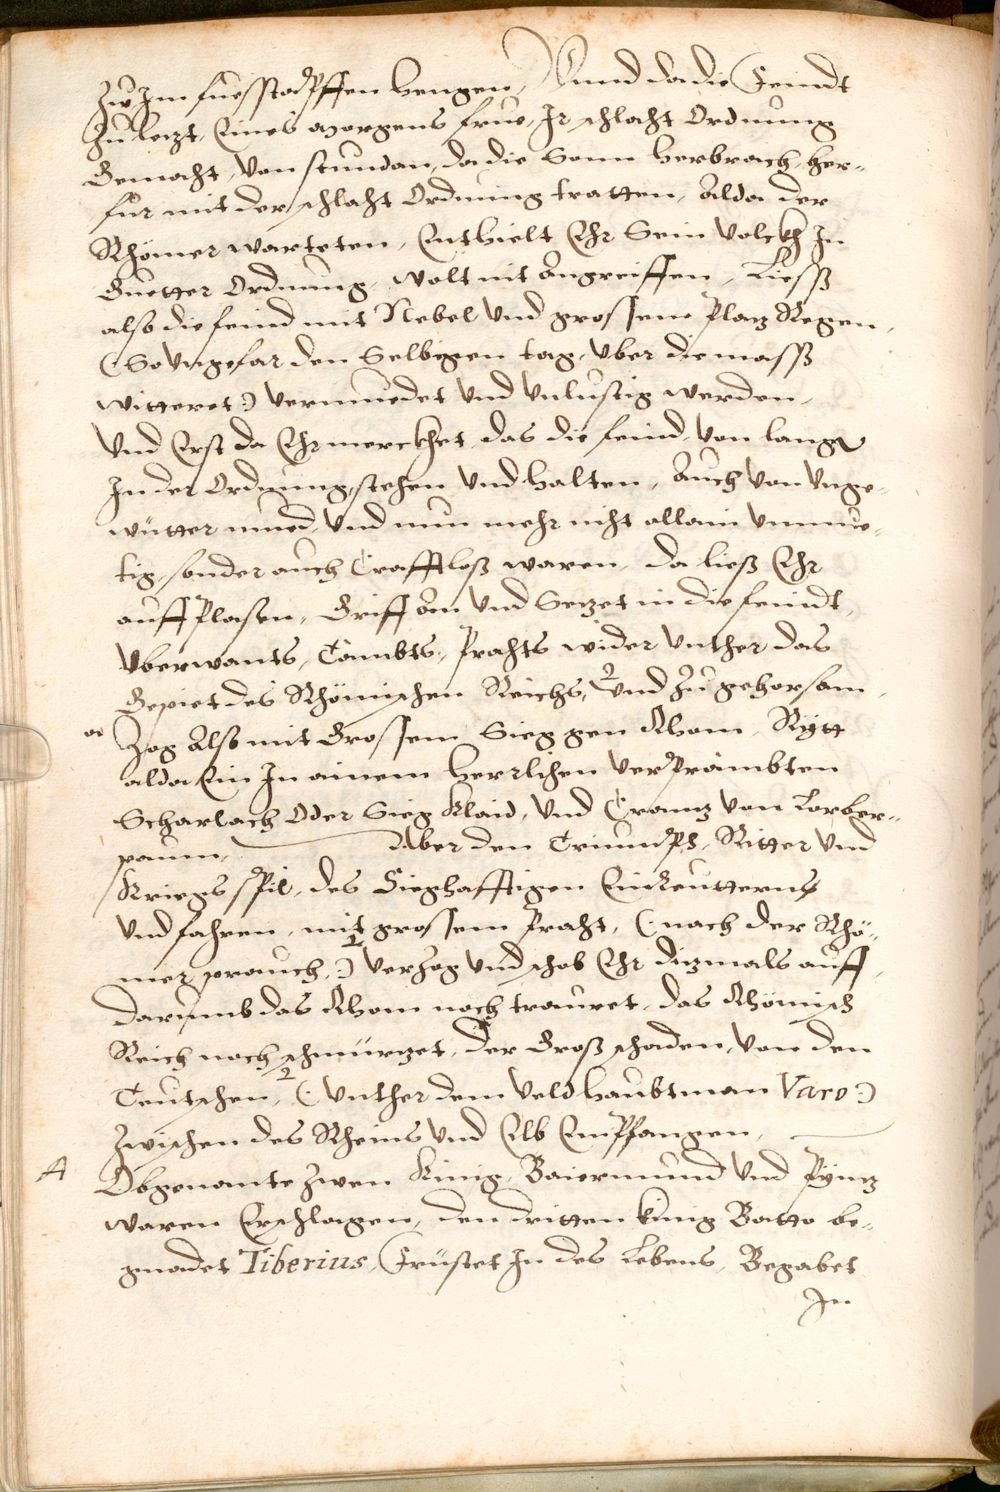 Zw Im fuesstapffen hengen, Vnnd da die Feindt
Zu letzt, Eines Morgens frue, Ir schlacht Ordnung
Gemacht, Von stundan, da die Sonn herbrach, her-
für mit der schlacht Ordnung tratten, Alda der
Rhömer warteten, Enthielt Ehr Sein Volckh In
Guetter Ordnung, wolt nit Angreiffen, Liesß
also die feind mit Nebel Vnd grossem Platz Regen,
(: So Vngefar den Selbigen tag, Vber die masß
witteret :) Vermuedet Vnd Vnlustig werden,
Vnd Erst da Ehr merckhet, das die feind, Von langem
In der Ordnung stehen Vnd halten, Auch Von Vnge-
witter mued, Vnd nun mehr nicht allain Vnmue-
tig, sonder auch Crafftloß waren, da ließ Ehr
auff Plasen, Griff An Vnd Setzet in die feindt,
Vberwants, Tämbts, Prachts wider Vnther das
Gepiet des Rhömischen Reichs, 2 Vnd Zu gehorsam,
Zog Also mit Grossem Sieg gen Rhom, Rytt
alda Ein In ainem herrlichen Verprämbten
Scharlach Oder Sieg Klaid, Vnd Crantz Von Lorber-
paum, Aber den Triumph, Ritter Vnd
Kriegs spil, des Sieghafftigen Einreutterns
Vnd fahren, mit grossem Pracht, (: nach der Rhö-
mer prauch, :) 2 Verzog Vnd schob Ehr ditzmals auff,
darumb das Rhom noch trauret, das Rhömisch
Reich noch schmürtzet, der Groß schaden, Von den
Teutschen, 2 (: Vnther dem Veldhaubtman Varo :)
Zwischen des Rheins Vnd Elb Empfangen,
A Obgenante Zwen König, Baiermund Vnd Pyntz
waren Erschlagen, den dritten König Batto be-
gnadet Tiberius, Fristet In des Lebens, Begabet
In